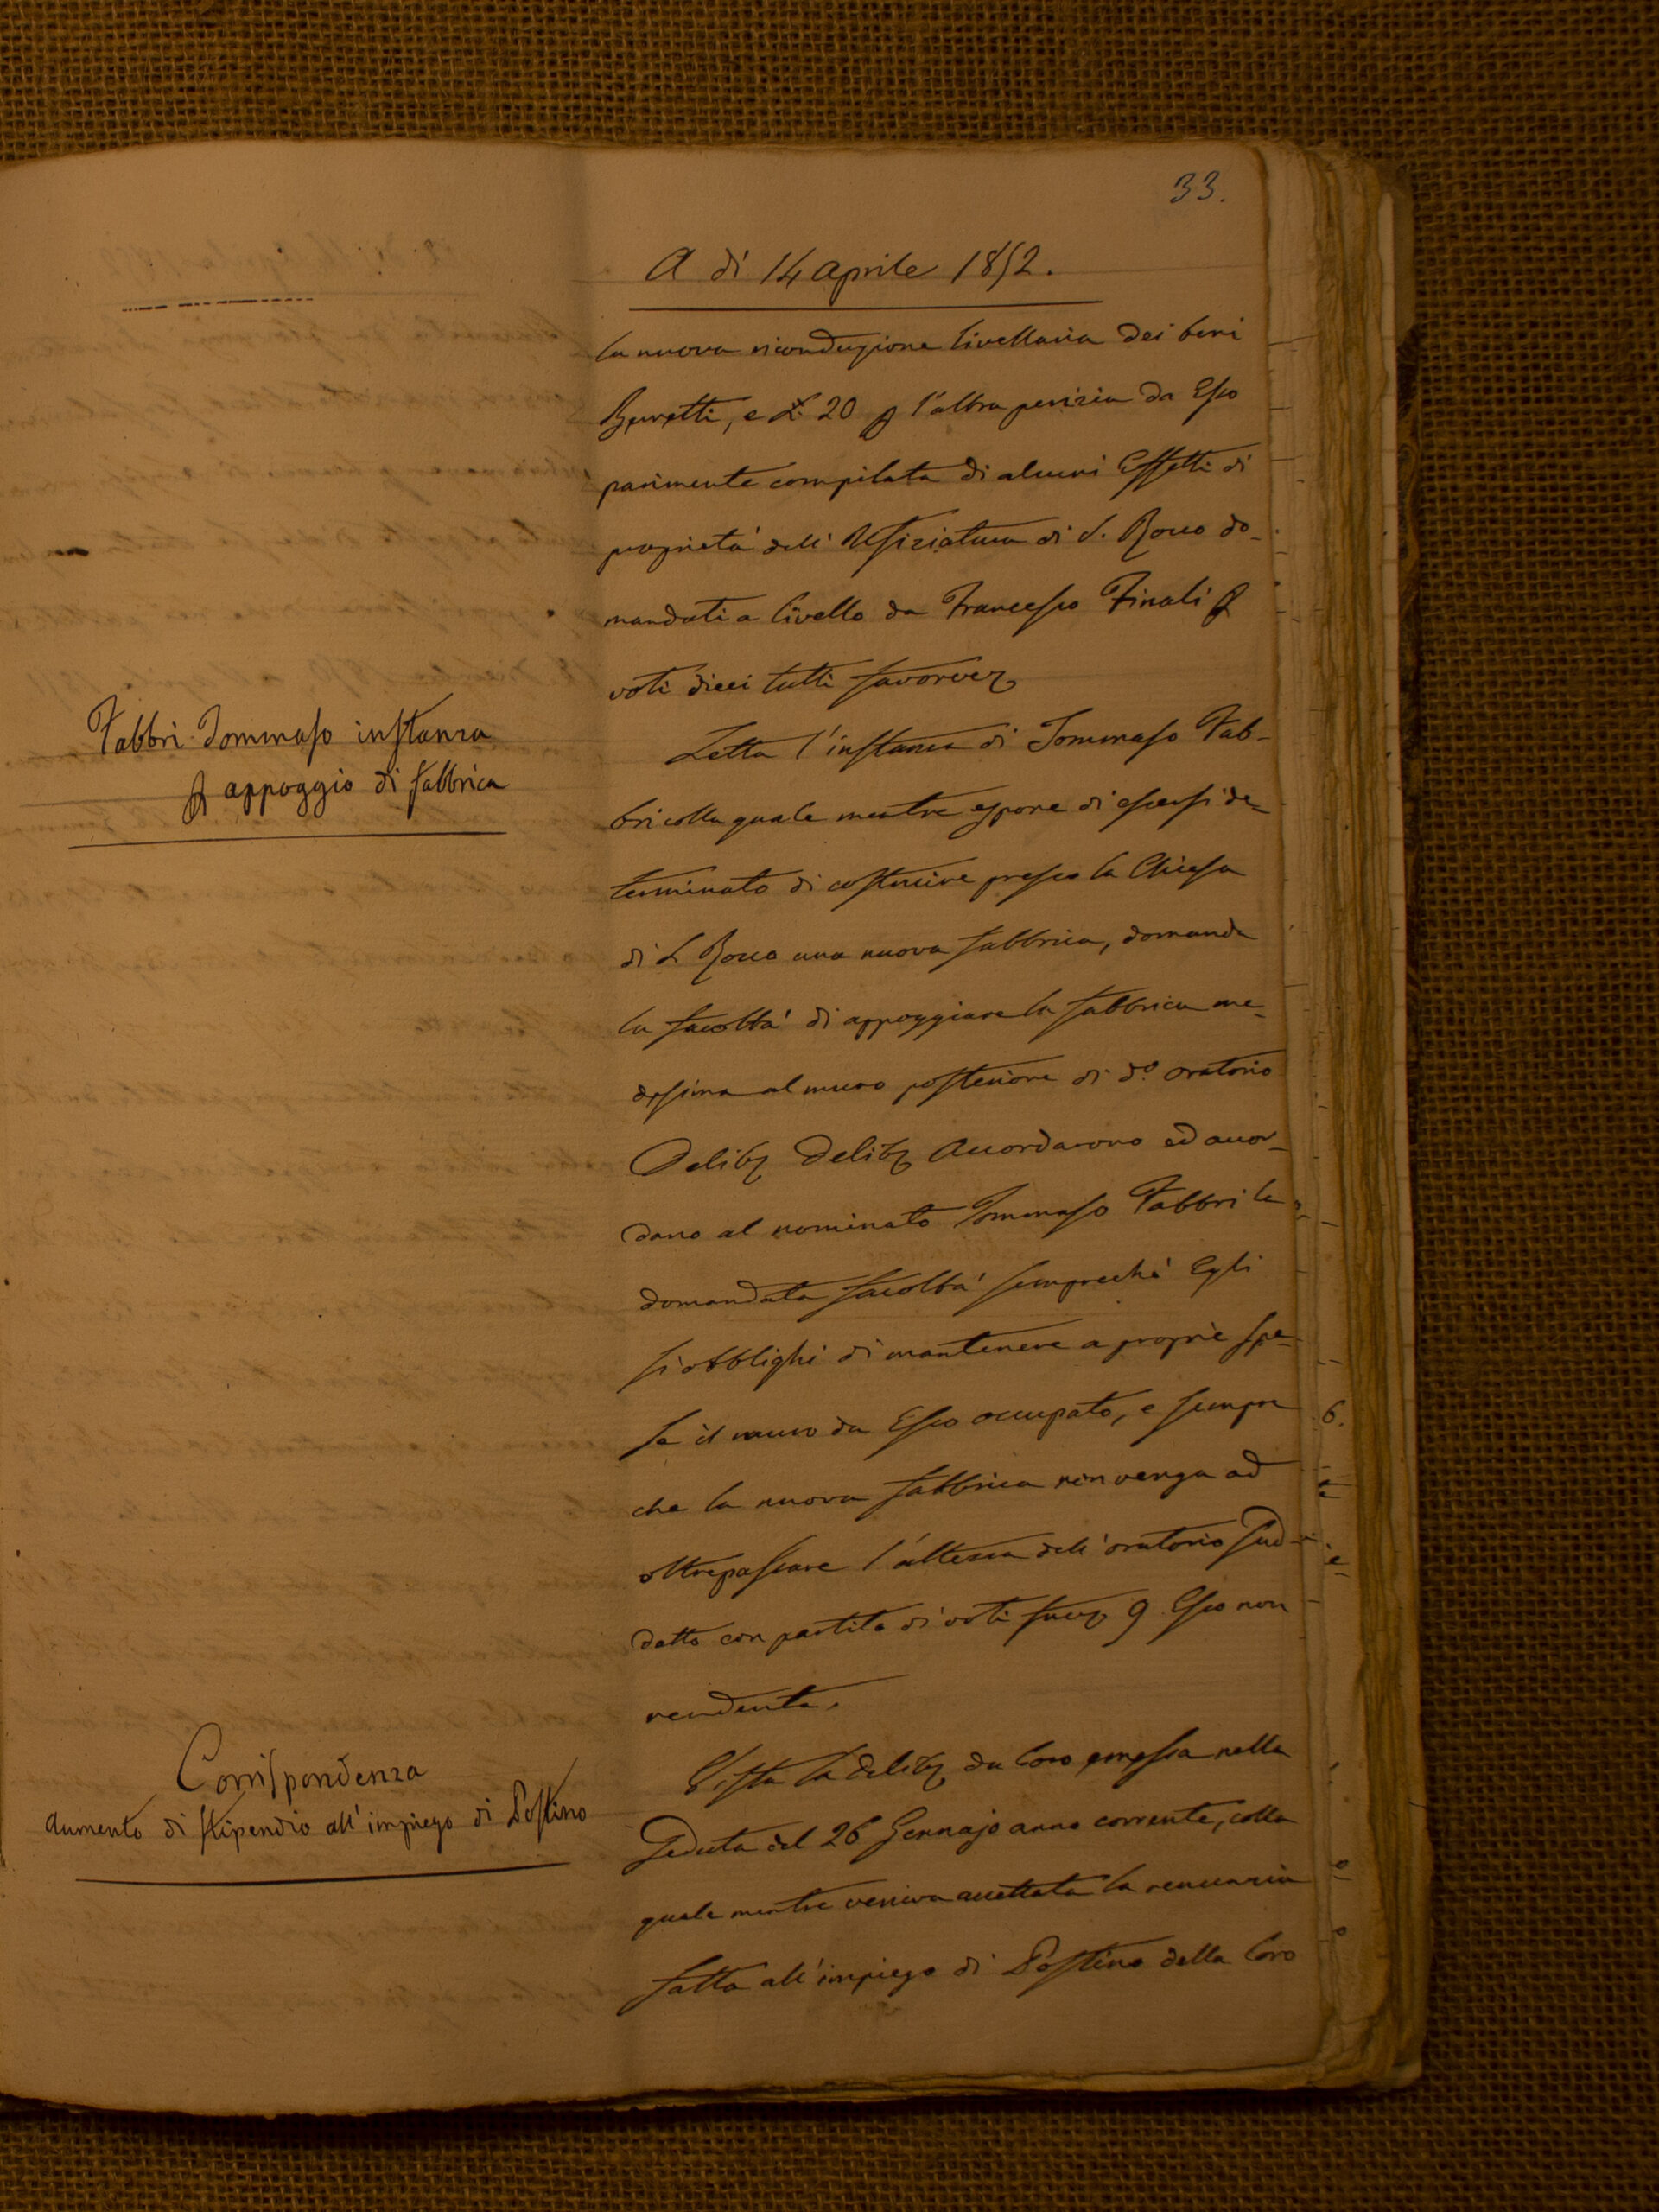 33.
A di 14 aprile 1852.
la nuova riconduzione livellaria dei beni
e £ 20 p l'altra perizia da Esso
parimente compilata di alcuni Effetti di
proprietà dell' Ufiziatura di S. Rocco do-
mandati a livello da Francesco Finali p
voti dieci tutti favorev
Fabbri Tommaso instanza
p appoggio di fabbrica
Letta l'instanza di Tommaso Fab-
bri colla quale mentre espone di essersi de-
terminato di costruire presso la Chiesa
di S Rocco una nuova fabbrica, domanda
la facoltà di appoggiare la fabbrica me-
desima al muro posteriore di do. oratorio
Delib Delib Accordarono ed accor-
dano al nominato Tommaso Fabbri la
domandata facoltà semprechè Egli
si obblighi di mantenere a proprie spe-
se il muro da Esso occupato, e sempre
che la nuova fabbrica non venga ad
oltrepassare l'altezza dell'oratorio sud-
detto con partita di voti 9 Esso non
rendente.
Corrispondenza
Aumento di Stipendio all'impiego di Postino
Vista la delib da loro emessa nella
Seduta del 26 Gennajo anno corrente, colla
quale mentre veniva accettata la renunzia
fatta all'impiego di Postino della loro